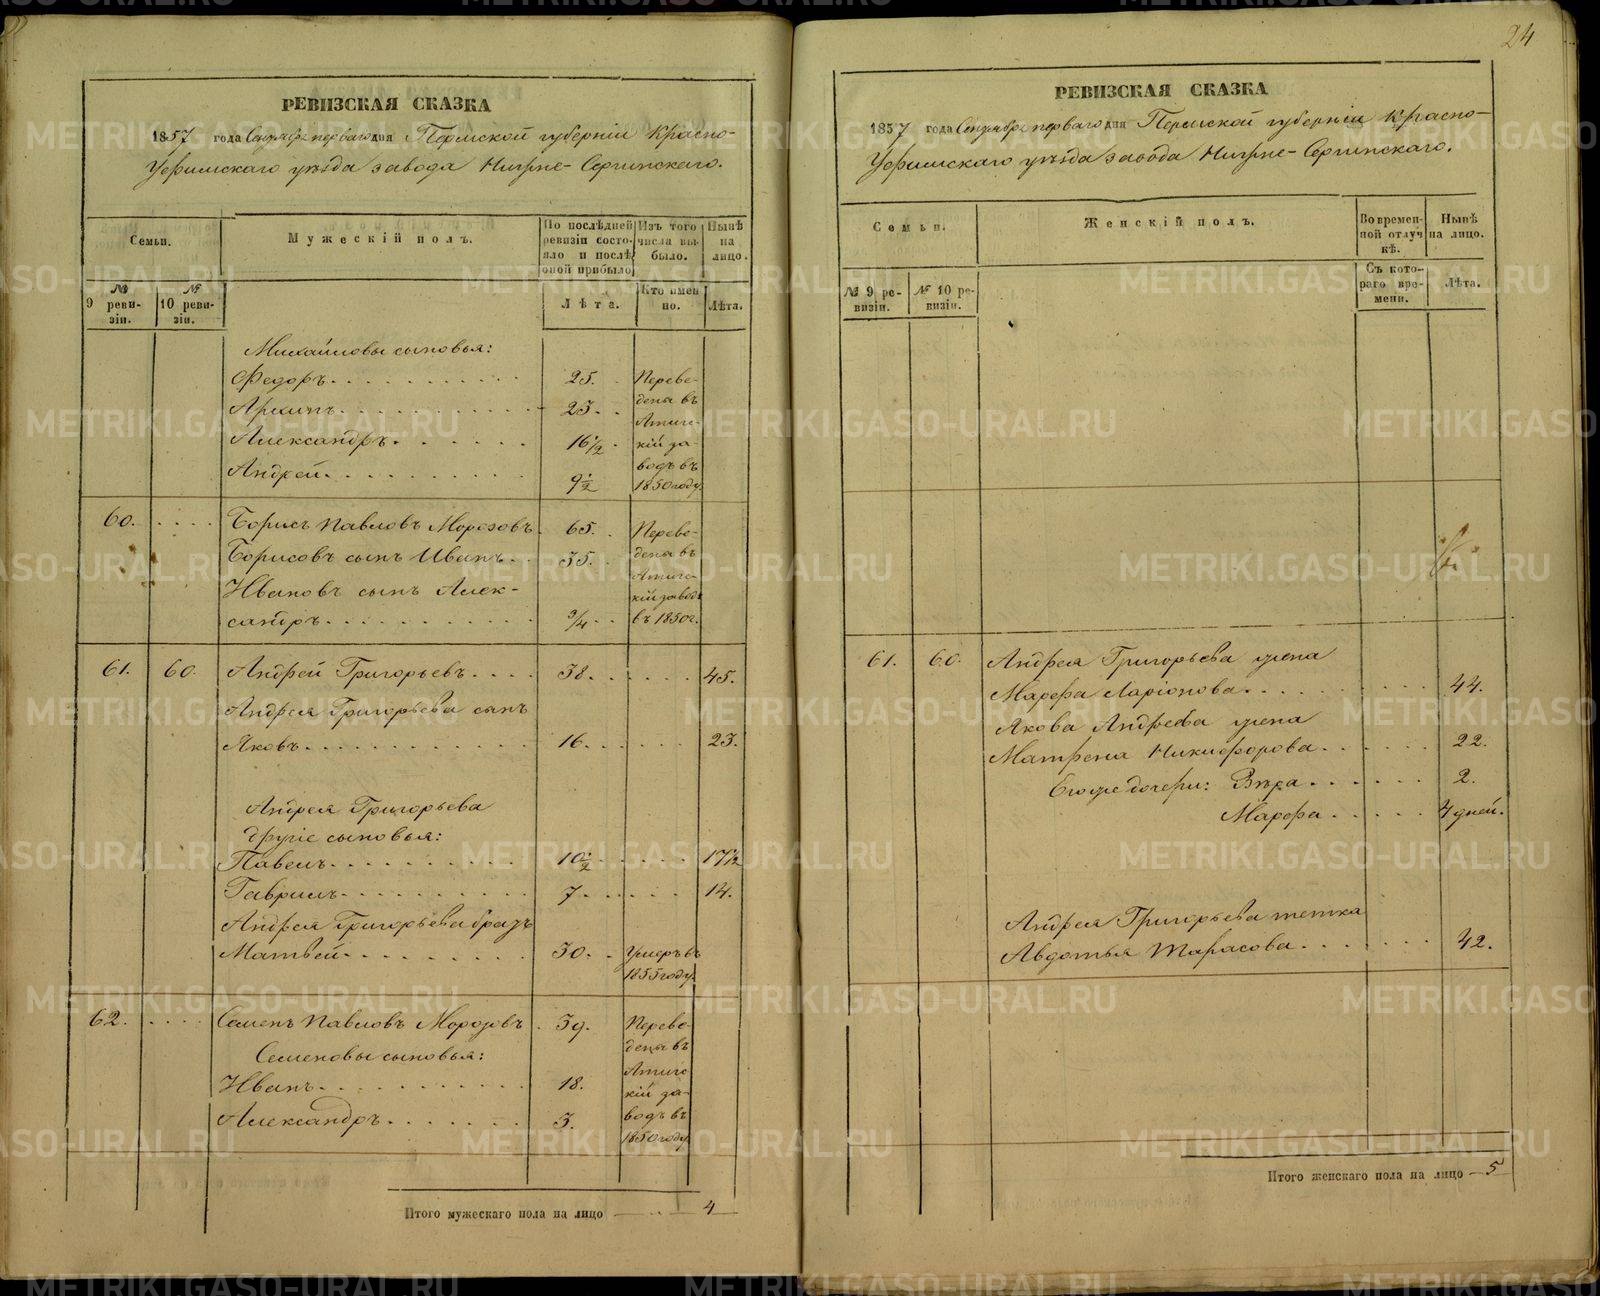 РЕВИЗСКАЯ СКАЗКА
1857 года Сентября перваго дня Пермской губерніи Красно-
Уфимскаго уѣзда завода Нижне-Сергинскаго.
Семьи.
Мужескій полъ.
По послѣдней ревизіи состояло и послѣ оной прибыло
Изъ того числа выбыло.
Нынѣ на лицо.
№ 9 ревизіи.
№ 10 ревизіи.
Лѣта.
Кто именно.
Лѣта.
Михайловы сыновья:
Федоръ 25. Переве-
Архипъ 23. дена въ
Александръ 16½ Атиг-
скій за-
Андрей 9½ водъ въ
1850 году.
60. Борисъ Павловъ Морозовъ 65. Переве-
Борисовъ сынъ Иванъ 35. дена въ
Ивановъ сынъ Алек-
сандръ ¾ въ 1850 г.
61. 60. Андрей Григорьевъ 38. 45.
Андрея Григорьева сынъ
Яковъ 16. 23.
Андрея Григорьева
другіе сыновья:
Павелъ 10½ 17½
Гаврилъ 7 14.
Андрея Григорьева братъ
Матвей 30. Умеръ въ
1855 году.
62. Семенъ Павловъ Морозовъ 39. Переве-
Семеновы сыновья: дена въ
Иванъ 18.
Александръ 3. водъ въ
1850 году
Итого мужескаго пола на лицо 4
24
РЕВИЗСКАЯ СКАЗКА
1857 года Сентября перваго дня Пермской губерніи Красно-
Уфимскаго уѣзда завода Нижне-Сергинскаго.
Семьи.
Женскій полъ.
Во временной отлучкѣ.
Нынѣ на лицо.
№ 9 ревизіи.
№ 10 ревизіи.
Съ котораго времени.
Лѣта.
61. 60. Андрея Григорьева жена
Марфа Ларіонова 44.
Якова Андреева жена
Матрена Никифорова 22.
Его же дочери: Вѣра 2.
Марфа 4 дней.
Андрея Григорьева тетка
Авдотья Тарасова 42.
Итого женскаго пола на лицо 5
METRIKI.GASO-URAL.RU